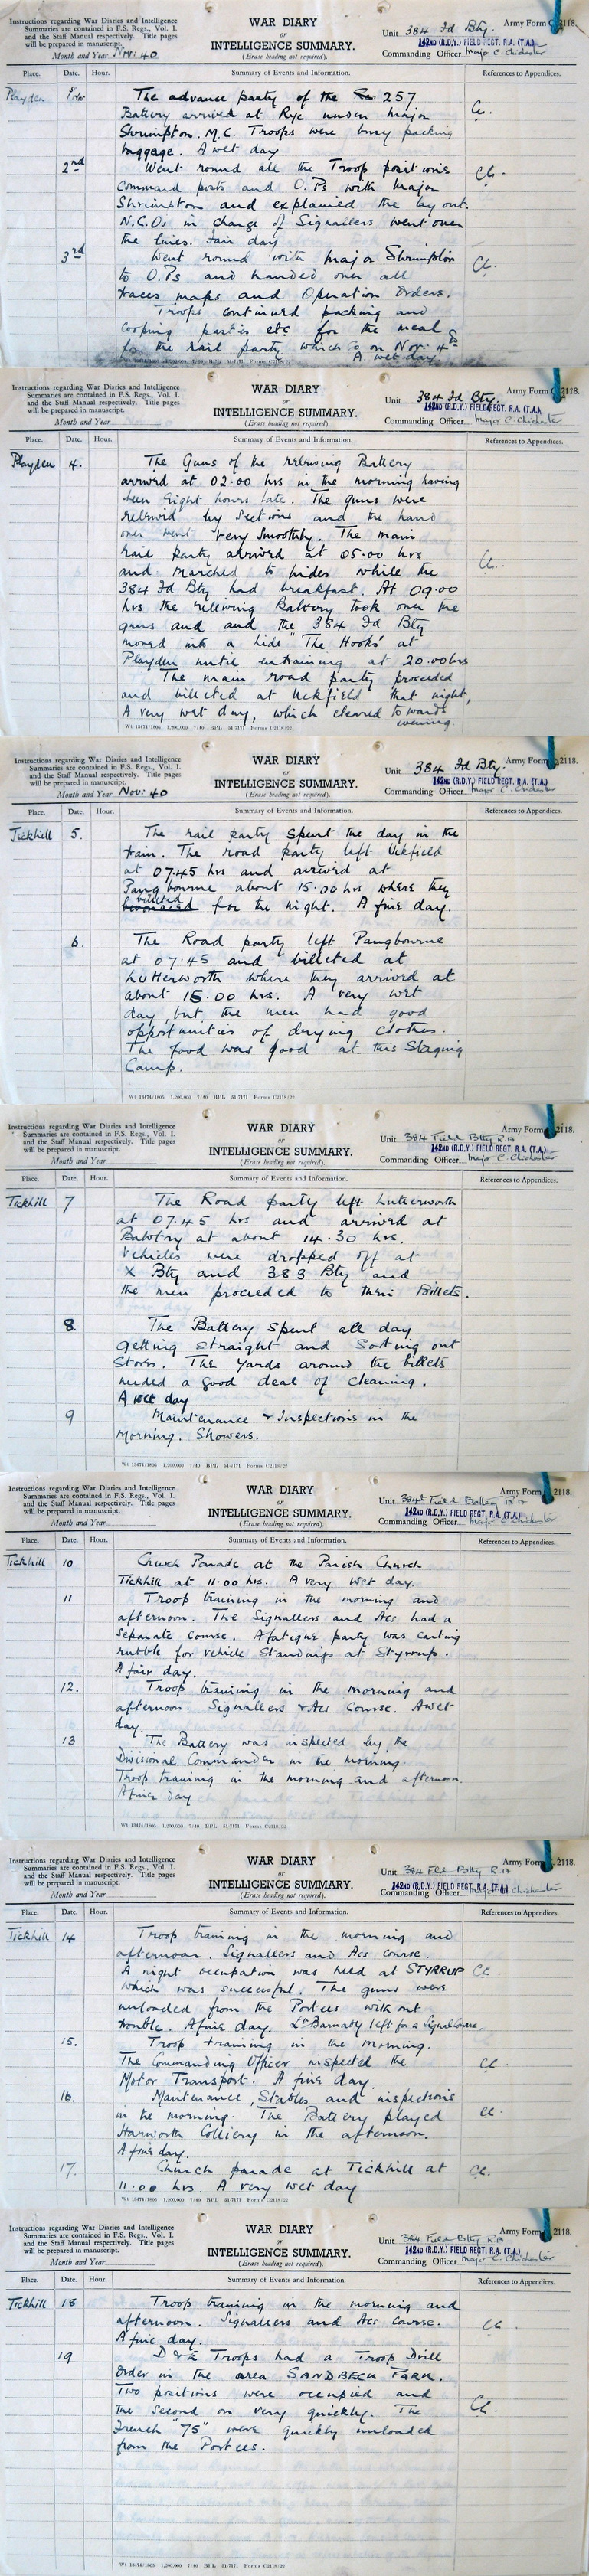 Instructions regarding War Diaries and Intelligence
Summaries are contained in F.S. Regs., Vol. I.
and the Staff Manual respectively. Title pages
will be prepared in manuscript.
Month and Year Nov: 40
WAR DIARY
or
INTELLIGENCE SUMMARY.
(Erase heading not required).
Army Form C2118.
Unit 384 Fd Bty.
142ND (R.D.Y.) FIELD REGT. R.A. (T.A.)
Commanding Officer Major C. Chichester
Place. Date. Hour. Summary of Events and Information. References to Appendices.
Playden 1st Nov The advance party of the 257
Battery arrived at Rye under Major
Shrimpton. M.C. Troops were busy packing
baggage. A wet day
2nd Went round all the Troop positions
Command posts and O.Ps with Major
Shrimpton and explained the lay out.
N.C.Os in charge of Signallers went over
the lines. Fair day
3rd Went round with Major Shrimpton
to O.Ps and handed over all
traces maps and Operation Orders.
Troops continued packing and
Cooping parties etc for the meal
for the rail party which is on Nov: 4th
A wet day
Instructions regarding War Diaries and Intelligence
Summaries are contained in F.S. Regs., Vol. I.
and the Staff Manual respectively. Title pages
will be prepared in manuscript.
Month and Year
WAR DIARY
or
INTELLIGENCE SUMMARY.
(Erase heading not required).
Army Form C2118.
Unit 384 Fd Bty.
142ND (R.D.Y.) FIELD REGT. R.A. (T.A.)
Commanding Officer Major C. Chichester
Place. Date. Hour. Summary of Events and Information. References to Appendices.
Playden 4. The Guns of the relieving Battery
arrived at 02.00 hrs in the morning having
been Eight hours late. The guns were
relieved by Sections and the hand
over went very smoothly. The main
rail party arrived at 05.00 hrs
and marched to hides while the
384 Fd Bty had breakfast. At 09.00
hrs the relieving Battery took over the
guns and and the 384 Fd Bty
moved into a hide "The Hooks" at
Playden until entraining at 20.00 hrs
The main road party proceeded
and billeted at Uckfield that night,
A very wet day, which cleared towards
evening.
Wt 13474/1805 1,200,000 7/40 BPL 51-7171 Forms C2118/22
Instructions regarding War Diaries and Intelligence
Summaries are contained in F.S. Regs., Vol. I.
and the Staff Manual respectively. Title pages
will be prepared in manuscript.
Month and Year Nov: 40
WAR DIARY
or
INTELLIGENCE SUMMARY.
(Erase heading not required).
Army Form C2118.
Unit 384 Fd Bty.
142ND (R.D.Y.) FIELD REGT. R.A. (T.A.)
Commanding Officer Major C. Chichester
Place. Date. Hour. Summary of Events and Information. References to Appendices.
Tickhill 5. The rail party spent the day in the
train. The road party left Uckfield
at 07.45 hrs and arrived at
Pangbourne about 15.00 hrs where they
billeted
bivouaced for the night. A fine day.
6. The Road party left Pangbourne
at 07.45 and billeted at
Lutterworth where they arrived at
about 15.00 hrs. A very wet
day, but the men had good
opportunities of drying clothes.
The food was good at this Staging
Camp.
Wt 13474/1805 1,200,000 7/40 BPL 51-7171 Forms C2118/22
Instructions regarding War Diaries and Intelligence
Summaries are contained in F.S. Regs., Vol. I.
and the Staff Manual respectively. Title pages
will be prepared in manuscript.
Month and Year
WAR DIARY
or
INTELLIGENCE SUMMARY.
(Erase heading not required).
Army Form 2118.
Unit 384 Field Btty R.A
142ND (R.D.Y.) FIELD REGT. R.A. (T.A.)
Commanding Officer Major C. Chichester
Place. Date. Hour. Summary of Events and Information. References to Appendices.
Tickhill 7 The Road party left Lutterworth
at 07.45 hrs and arrived at
Babotry at about 14.30 hrs.
Vehicles were dropped off at
X Bty and 383 Bty and
the men proceeded to their Billets.
8. The Battery spent all day
getting straight and Sorting out
Stores. The yards around the billets
needed a good deal of cleaning.
A wet day
9 Maintenance & Inspections in the
Morning. Showers.
Wt 13474/1805 1,200,000 7/40 BPL 51-7171 Forms C2118/22
Instructions regarding War Diaries and Intelligence
Summaries are contained in F.S. Regs., Vol. I.
and the Staff Manual respectively. Title pages
will be prepared in manuscript.
Month and Year
WAR DIARY
or
INTELLIGENCE SUMMARY.
(Erase heading not required).
Army Form 2118.
Unit 384th Field Battery R.A
142ND (R.D.Y.) FIELD REGT. R.A. (T.A.)
Commanding Officer Major C Chichester
Place. Date. Hour. Summary of Events and Information. References to Appendices.
Tickhill 10 Church Parade at the Parish Church
Tickhill at 11.00 hrs. A very wet day.
11 Troop training in the morning and
afternoon. The Signallers and Acs had a
Separate course. A fatigue party was carting
rubble for vehicle Standings at Styrrup.
A fair day.
12. Troop training in the morning and
afternoon. Signallers & Acs Course. A wet
day.
13 The Battery was inspected by the
Divisional Commander in the morning
Troop training in the morning and afternoon.
A fine day
Wt 13474/1805 1,200,000 7/40 BPL 51-7171 Forms C2118/22
Instructions regarding War Diaries and Intelligence
Summaries are contained in F.S. Regs., Vol. I.
and the Staff Manual respectively. Title pages
will be prepared in manuscript.
Month and Year
WAR DIARY
or
INTELLIGENCE SUMMARY.
(Erase heading not required).
Army Form 2118.
Unit 384 Fld Btty R A
142ND (R.D.Y.) FIELD REGT. R.A. (T.A.)
Commanding Officer Major C Chichester
Place. Date. Hour. Summary of Events and Information. References to Appendices.
Tickhill 14 Troop training in the morning and
afternoon. Signallers and Acs course.
A night occupation was held at STYRRUP CC.
which was successful. The guns were
unloaded from the Portees with out
trouble. A fine day. Lt Barnaby left for a Signal Course.
15. Troop training in the morning.
The Commanding Officer inspected the CC.
Motor Transport. A fine day.
16. Maintenance, Stables and inspections
in the morning. The Battery played CC.
Harworth Colliery in the afternoon.
A fine day.
17. Church parade at Tickhill at CC.
11.00 hrs. A very wet day
Wt 13474/1805 1,200,000 7/40 BPL 51-7171 Forms C2118/22
Instructions regarding War Diaries and Intelligence
Summaries are contained in F.S. Regs., Vol. I.
and the Staff Manual respectively. Title pages
will be prepared in manuscript.
Month and Year
WAR DIARY
or
INTELLIGENCE SUMMARY.
(Erase heading not required).
Army Form 2118.
Unit 384 Field Btty R A
142ND (R.D.Y.) FIELD REGT. R.A. (T.A.)
Commanding Officer Major C. Chichester
Place. Date. Hour. Summary of Events and Information. References to Appendices.
Tickhill 18 Troop training in the morning and
afternoon. Signallers and Acs Course. CC.
A fine day.
19 D & E Troops had a Troop Drill
Order in the area SANDBECK PARK.
Two positions were occupied and
the Second on very quickly. The CC.
French "75" were quickly unloaded
from the Portees.
Wt 13474/1805 1,200,000 7/40 BPL 51-7171 Forms C2118/22